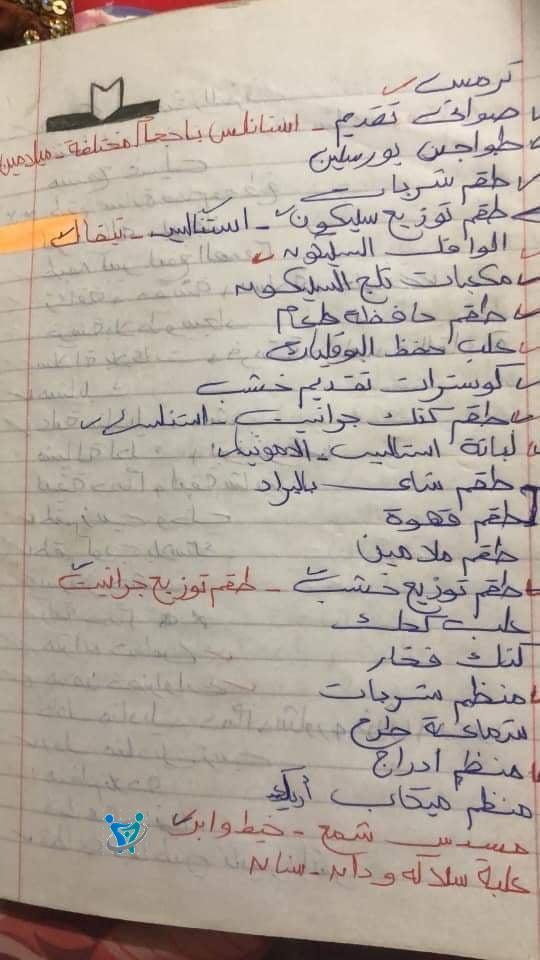 ترمس
صواني تقديم - استانلس باحجام مختلفة - ميلامين
طواجن بورسلين
طقم شربات
طقم توزيع سليكون - استنالس - تيفال
الوافل السليكون
مكعبات تلج السيليكون
طقم حافظه طعام
علب حفظ البوقليات
كوسترات تقديم خشب
طقم كنك جرانيت - استنلس
لبانة استاليس - الامونيا
طقم شاى بالبراد
طقم قهوة
طقم ملامين
طقم توزيع خشب - طقم توزيع جرانيت
علب كحك
كنك فخار
منظم شربات
شماعة طرح
منظم ادراج
منظم ميكاب
مسدس شمع - خيط وابر
علبة سلاكه ودابه - سنابه